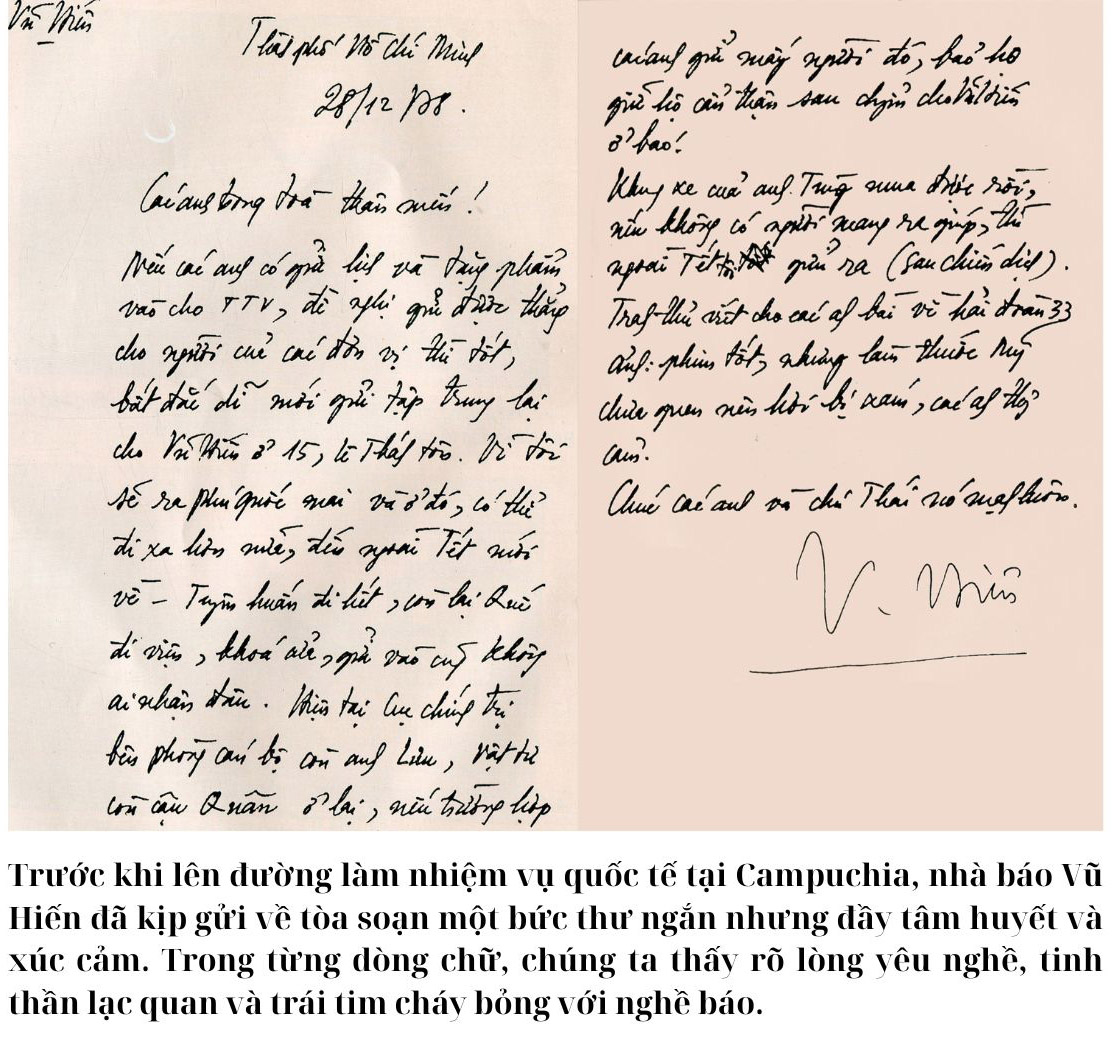 Vũ Hiến
Thành phố Hồ Chí Minh
28/12/78.
Các anh trong toà thân mến!
Nếu các anh có gửi lịch và tặng phẩm
vào cho TTV, đề nghị gửi được thẳng
cho người của các đơn vị thì tốt,
bất đắc dĩ mới gửi tập trung lại
cho Vũ Hiến ở 15, Lê Thánh tôn. Vì tôi
sẽ ra phú quốc mai và ở đó, có thể
đi xa hơn nữa, đến ngoài Tết mới
về – Tuyên huấn đi hết, còn lại Quế
đi viện, khoá cửa, gửi vào cũng không
ai nhận đâu. Hiện tại Cục chính trị
bên phòng cán bộ còn anh Lưu, vật tư
còn cậu Quân ở lại, nếu trường hợp
các anh gửi mấy người đó, bảo họ
giữ hộ cẩn thận sau chuyển cho Vũ Hiến
ở báo!
Khung xe của anh Trung mua được rồi,
nếu không có người mang ra giúp, thì
ngoài Tết gửi ra (sau chiến dịch).
Tranh thủ viết cho các anh bài về hải đoàn 33
ảnh: phim tốt, nhưng làm thuốc Mỹ
chưa quen nên hơi bị xám, các anh thông
cảm.
Chúc các anh và chú Thái nó mạnh luôn.
V. Hiến
Trước khi lên đường làm nhiệm vụ quốc tế tại Campuchia, nhà báo Vũ
Hiến đã kịp gửi về tòa soạn một bức thư ngắn nhưng đầy tâm huyết và
xúc cảm. Trong từng dòng chữ, chúng ta thấy rõ lòng yêu nghề, tinh
thần lạc quan và trái tim cháy bỏng với nghề báo.